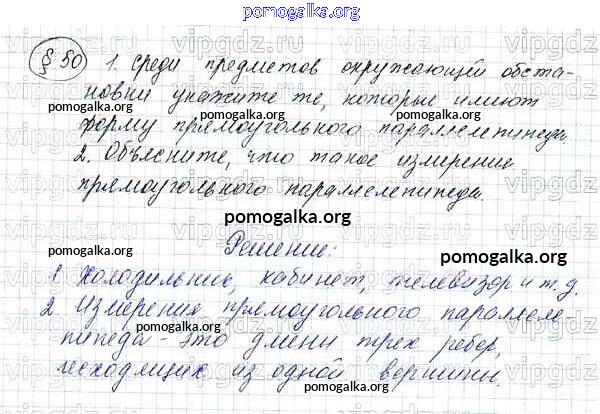 pomogalka.org
§ 50 1. Среди предметов окружающей обста-
новки укажите те, которые имеют
форму прямоугольного параллелепипеда.
2. Объясните, что такое измерение
прямоугольного параллелепипеда.
pomogalka.org
Решение:
1. Холодильник, кабинет, телевизор и т.д.
2. Измерения прямоугольного параллеле
пипеда - это длины трех ребер,
исходящих из одной вершины.